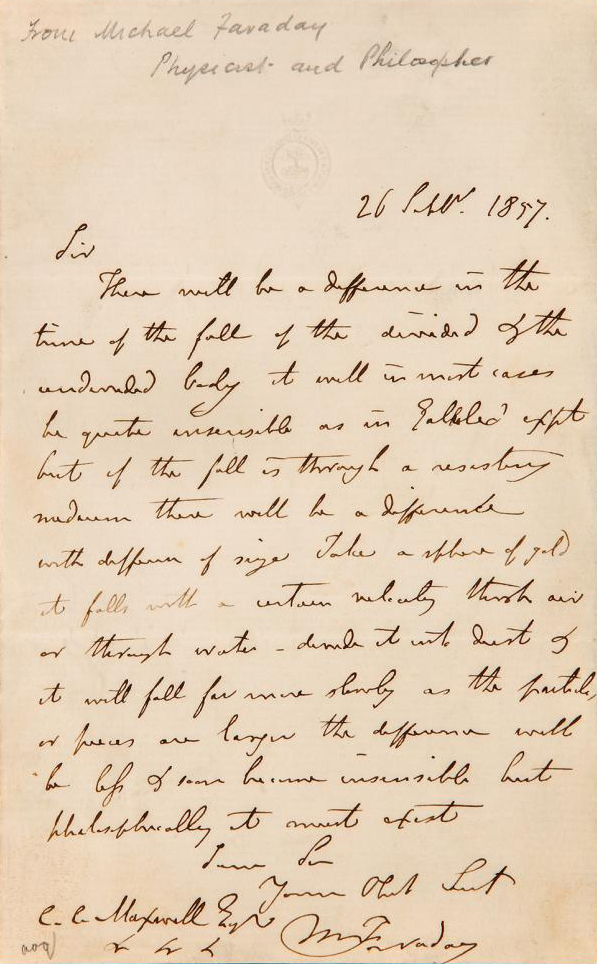 From Michael Faraday
Physicist and Philosopher
26 Septr. 1857.
Sir
There will be a difference in the
time of the fall of the divided & the
undivided body it will in most cases
be quite insensible as in expt
but if the fall is through a resisting
medium there will be a difference
with differen of size Take a sphere of gold
it falls with a certain velocity through air
or through water - divide it into dust &
it will fall far more slowly as the particles
or pieces are larger the difference will
be less & soon become insensible but
philosophically it must exist
I am Sir
Your Obt Servt
M Faraday
C. C. Maxwell Esqr
& & &